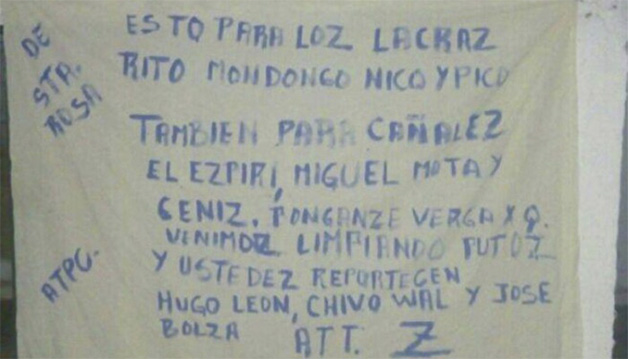 DE
STA.
ROSA
ESTO PARA LOZ LACRAZ
RITO MONDONGO NICO Y PICO
TAMBIEN PARA CAÑALEZ
EL EZPIRI, MIGUEL MOTA Y
GENIZ. PONGANZE VERGA X Q.
VENIMOZ LIMPIANDO PUTOZ
Y USTEDEZ REPORTEGEN
HUGO LEON, CHIVO WAL Y JOSE
BOLZA
ATT. Z
ATPC.